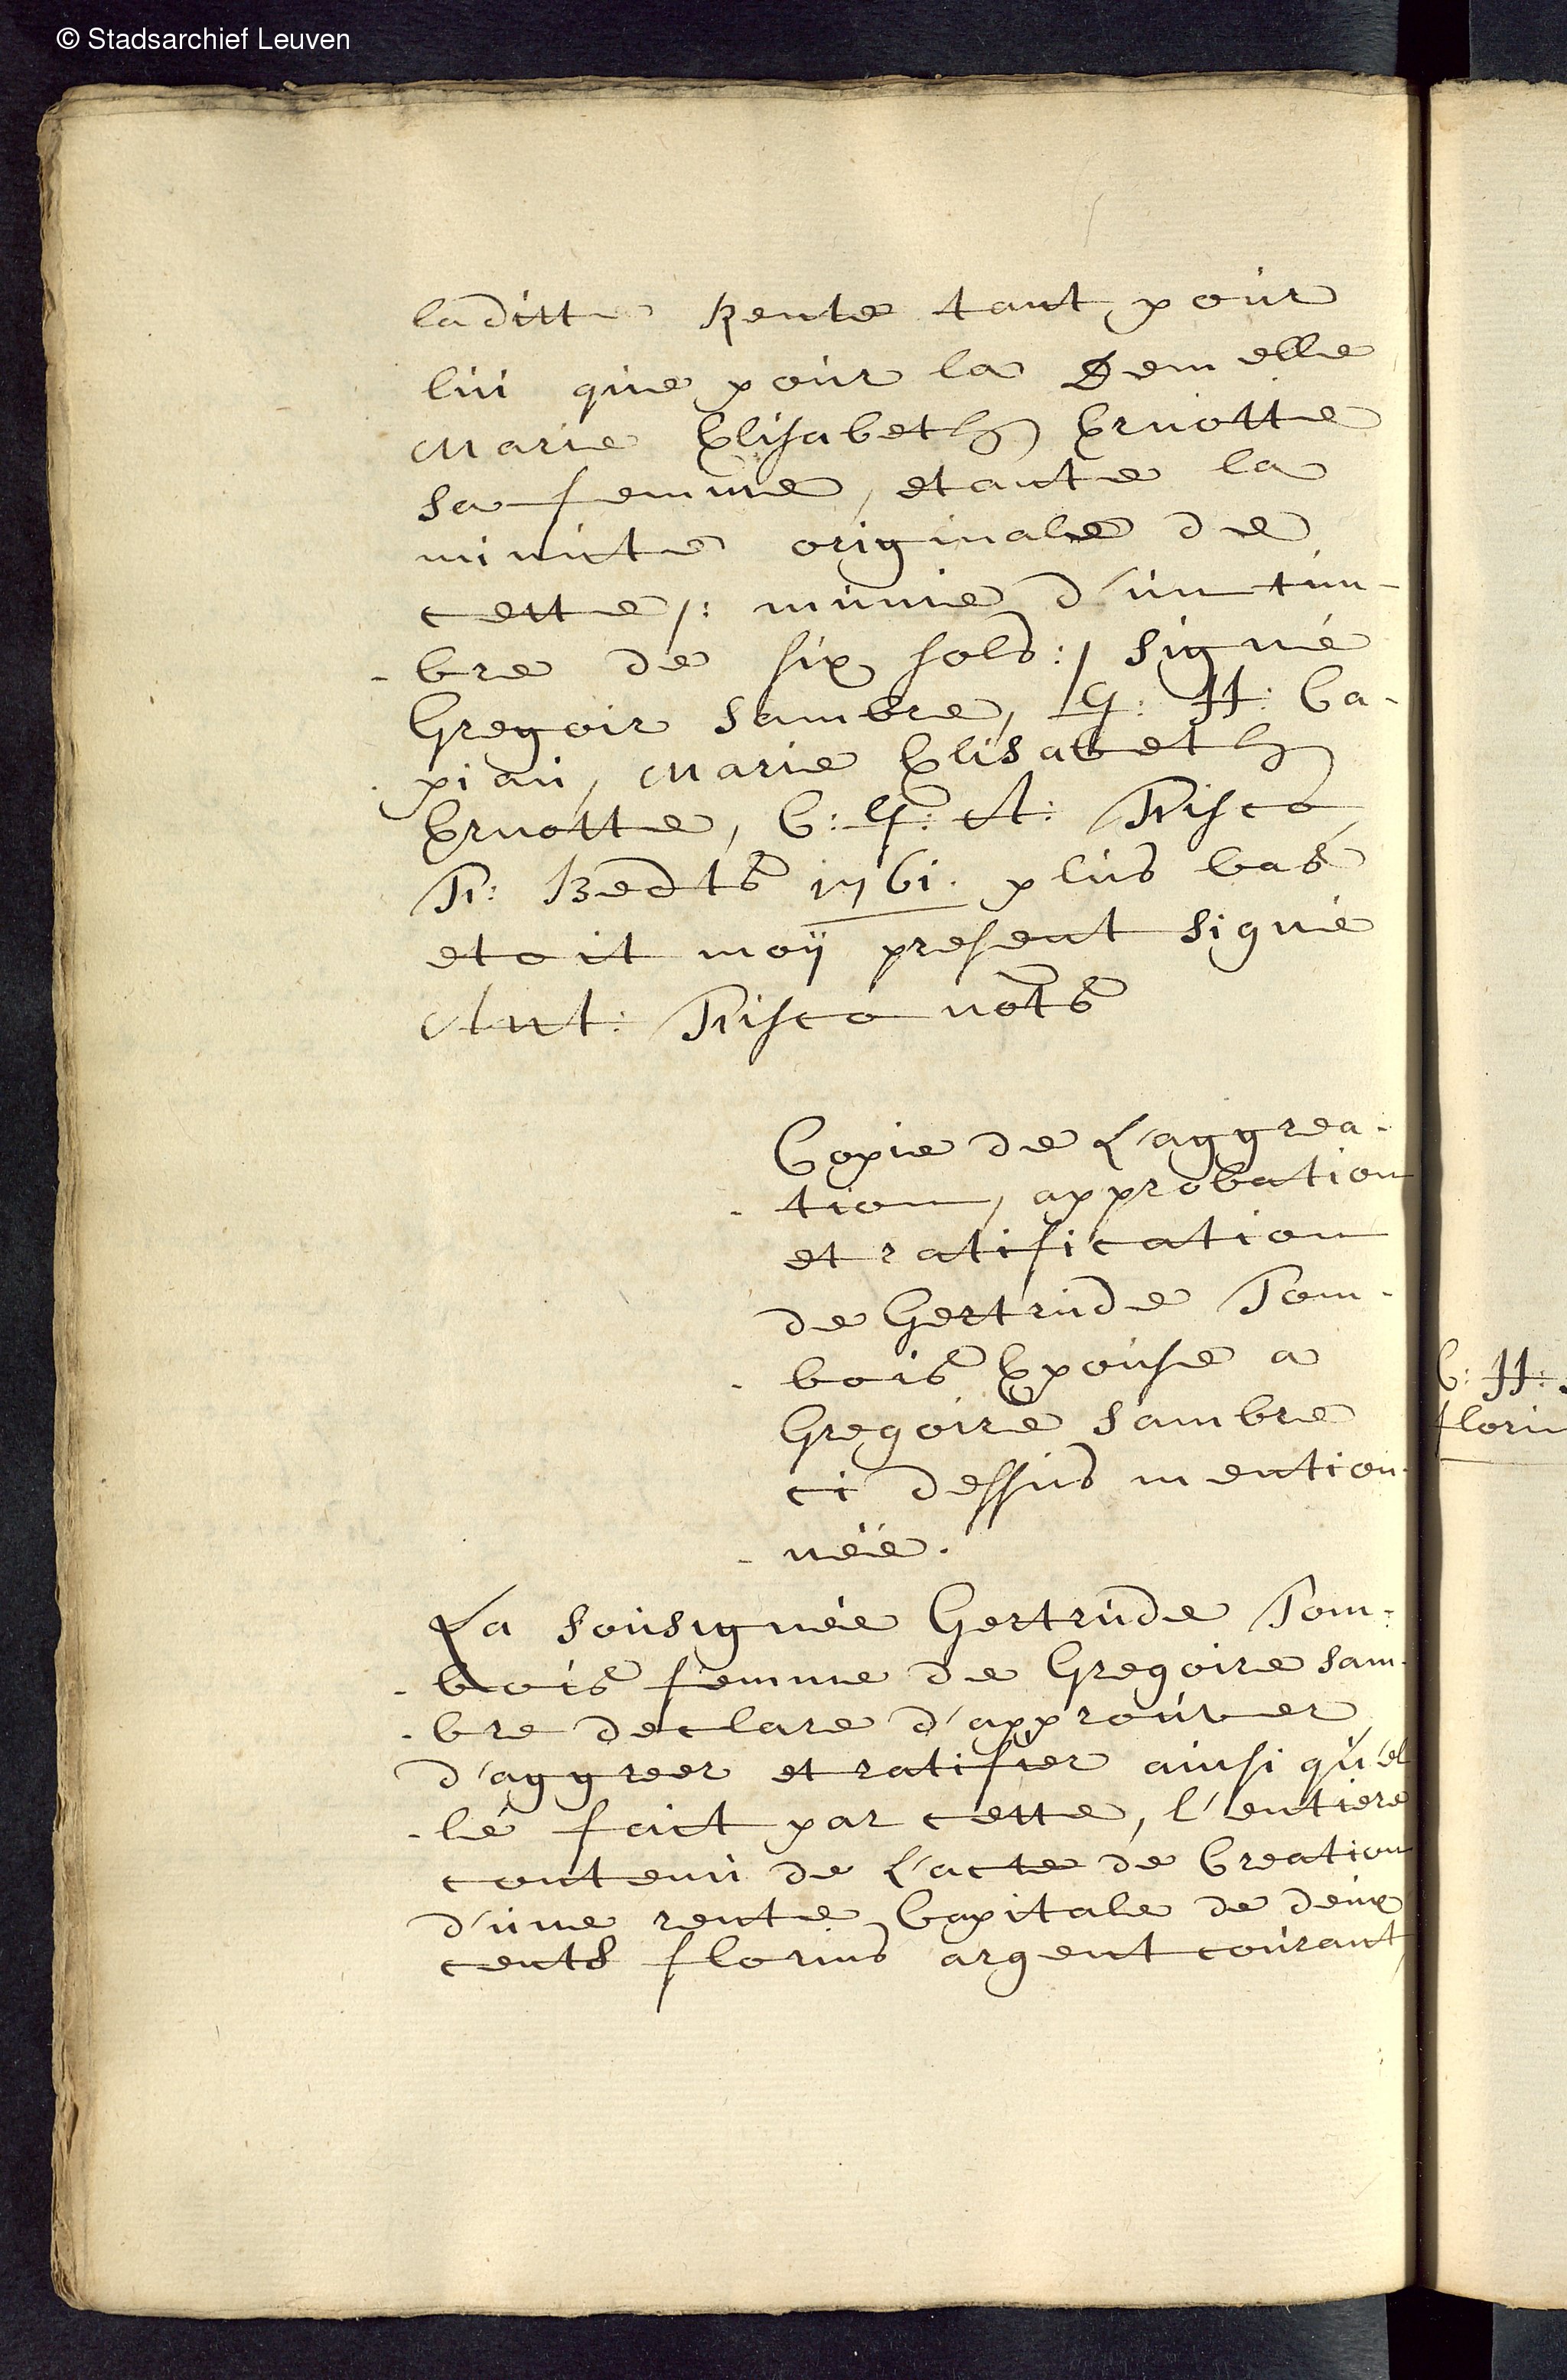 © Stadsarchief Leuven
laditte Rente tant pour
lui que pour la Demelle
Marie Elisabeth Ernotte
sa femme, etante la
minute originale de
cette /: munie d'un tim-
- bre de six sols :/ signé
Gregoir Sambre, G: H: Ca-
- piau, Marie Elisabeth
Ernotte, C: G: A: Trisco,
Fr: Bedts 1761. plus bas
etoit moÿ present signé
Ant: Trisco nots
Copie de L'aggrea-
- tion, approbation
et ratification
de Gertrude Tom-
- bois Epouse a
Gregoire Sambre
ci dessus mention-
- née.
La sousignée Gertrude Tom-
- bois femme de Gregoire Sam-
- bre declare d'approuver
d'aggreer et ratifier ainsi qu'el
- le fait par cette, l'entiere
contenu de l'acte de Creation
d'une rente Capitale de deux
cents florins argent courant,
C: H:
florin